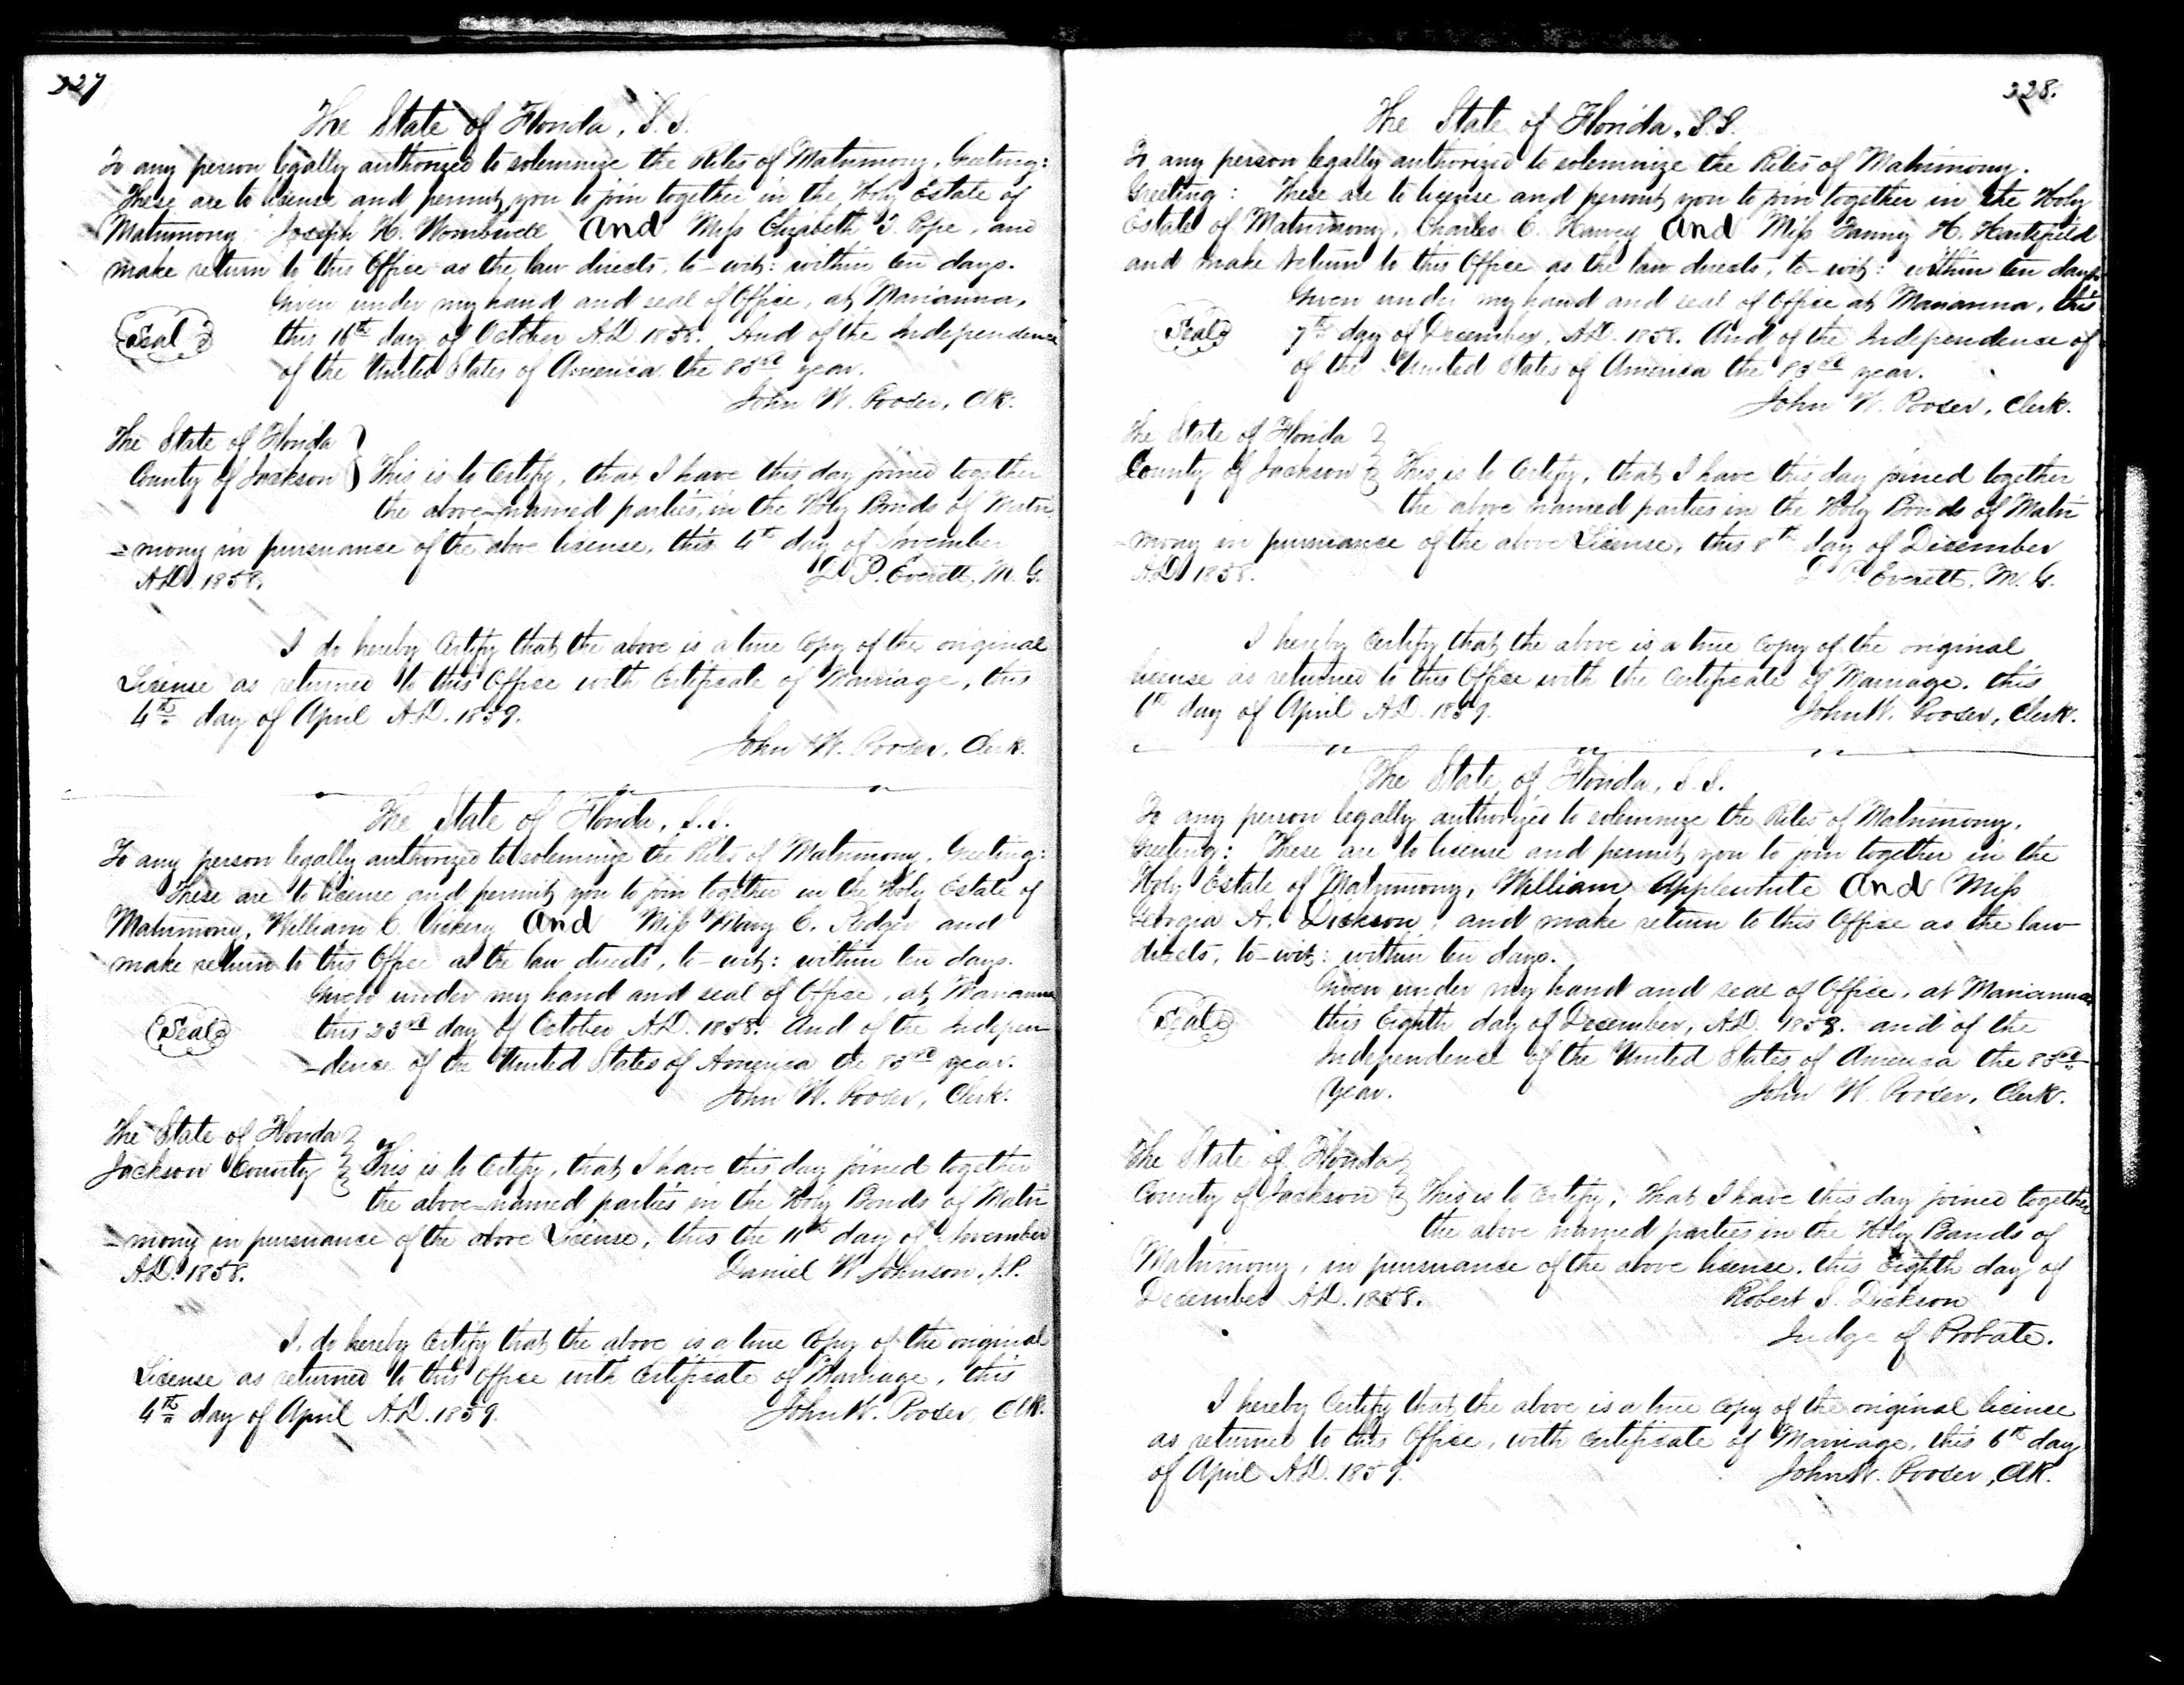 327
The State of Florida, S.S.
To any person legally authorized to solemnize the Rites of Matrimony, Greeting:
These are to license and permit you to join together in the Holy Estate of
Matrimony Joseph H. and Miss Elizabeth T. Pope, and
make return to this Office as the law directs, to-wit: within ten days.
Given under my hand and seal of Office, at Marianna,
Seal
this 16th day of October A.D. 1858. And of the Independence
of the United States of America the 83rd year.
John W. Pooser, Clk.
The State of Florida
County of Jackson This is to Certify, that I have this day joined together
the above-named parties, in the Holy Bonds of Matri
-mony in pursuance of the above license, this 4th day of November
A.D. 1858. L. P. Everett, M. G.
I do hereby Certify that the above is a true Copy of the original
License as returned to this Office with Certificate of Marriage, this
4th day of April A.D. 1859.
John W. Pooser, Clerk.
The State of Florida, S.S.
To any person legally authorized to solemnize the Rites of Matrimony, Greeting:
These are to license and permit you to join together in the Holy Estate of
Matrimony, William C. Vickery and Miss Mary C. and
make return to this Office as the law directs, to-wit: within ten days.
Given under my hand and seal of Office, at Marianna
Seal
this 23rd day of October A.D. 1858. And of the Indepen
-dence of the United States of America the 83rd year.
John W. Pooser, Clerk.
The State of Florida
Jackson County This is to Certify, that I have this day joined together
the above-named parties in the Holy Bonds of Matri
-mony in pursuance of the above License, this the 11th day of November
A.D. 1858. Daniel W. Johnson, J.P.
I, do hereby Certify that the above is a true Copy of the original
License as returned to this Office with Certificate of Marriage, this
4th day of April A.D. 1859. John W. Pooser Clk.
328.
The State of Florida, S.S.
To any person legally authorized to solemnize the Rites of Matrimony.
Greeting: These are to license and permit you to join together in the Holy
Estate of Matrimony, Charles C. Harvey and Miss Fanny H. Hartsfield
and make return to this Office as the law directs, to-wit: within ten days.
Given under my hand and seal of Office at Marianna, this
Seal
7th day of December, A.D. 1858. And of the Independence of
of the United States of America the 83rd year.
John W. Pooser, Clerk.
The State of Florida
County of Jackson This is to Certify, that I have this day joined together
the above named parties in the Holy Bonds of Matri
-mony in pursuance of the above License, this 8th day of December
A.D. 1858. L P Everett, M. G.
I hereby Certify that the above is a true Copy of the original
license as returned to this Office with the Certificate of Marriage. this
6th day of April A.D. 1859. John W. Pooser, Clerk.
The State of Florida, S.S.
To any person legally authorized to solemnize the Rites of Matrimony,
Greeting: These are to license and permit you to join together in the
Holy Estate of Matrimony, William Applewhite and Miss
Georgia A. Dickson, and make return to this Office as the law
directs, to-wit: within ten days.
Given under my hand and seal of Office, at Marianna
Seal
this Eighth day of December, A.D. 1858. and of the
Independence of the United States of America the 83rd
year. John W. Pooser, Clerk.
The State of Florida
County of Jackson This is to Certify, That I have this day joined together
the above named parties in the Holy Bands of
Matrimony, in pursuance of the above license. this Eighth day of
December A.D. 1858. Robert S. Dickson
Judge of Probate.
I hereby Certify that the above is a true copy of the original license
as returned to this Office, with Certificate of Marriage, this 6th day
of April A.D. 1859. John W. Pooser, Clk.